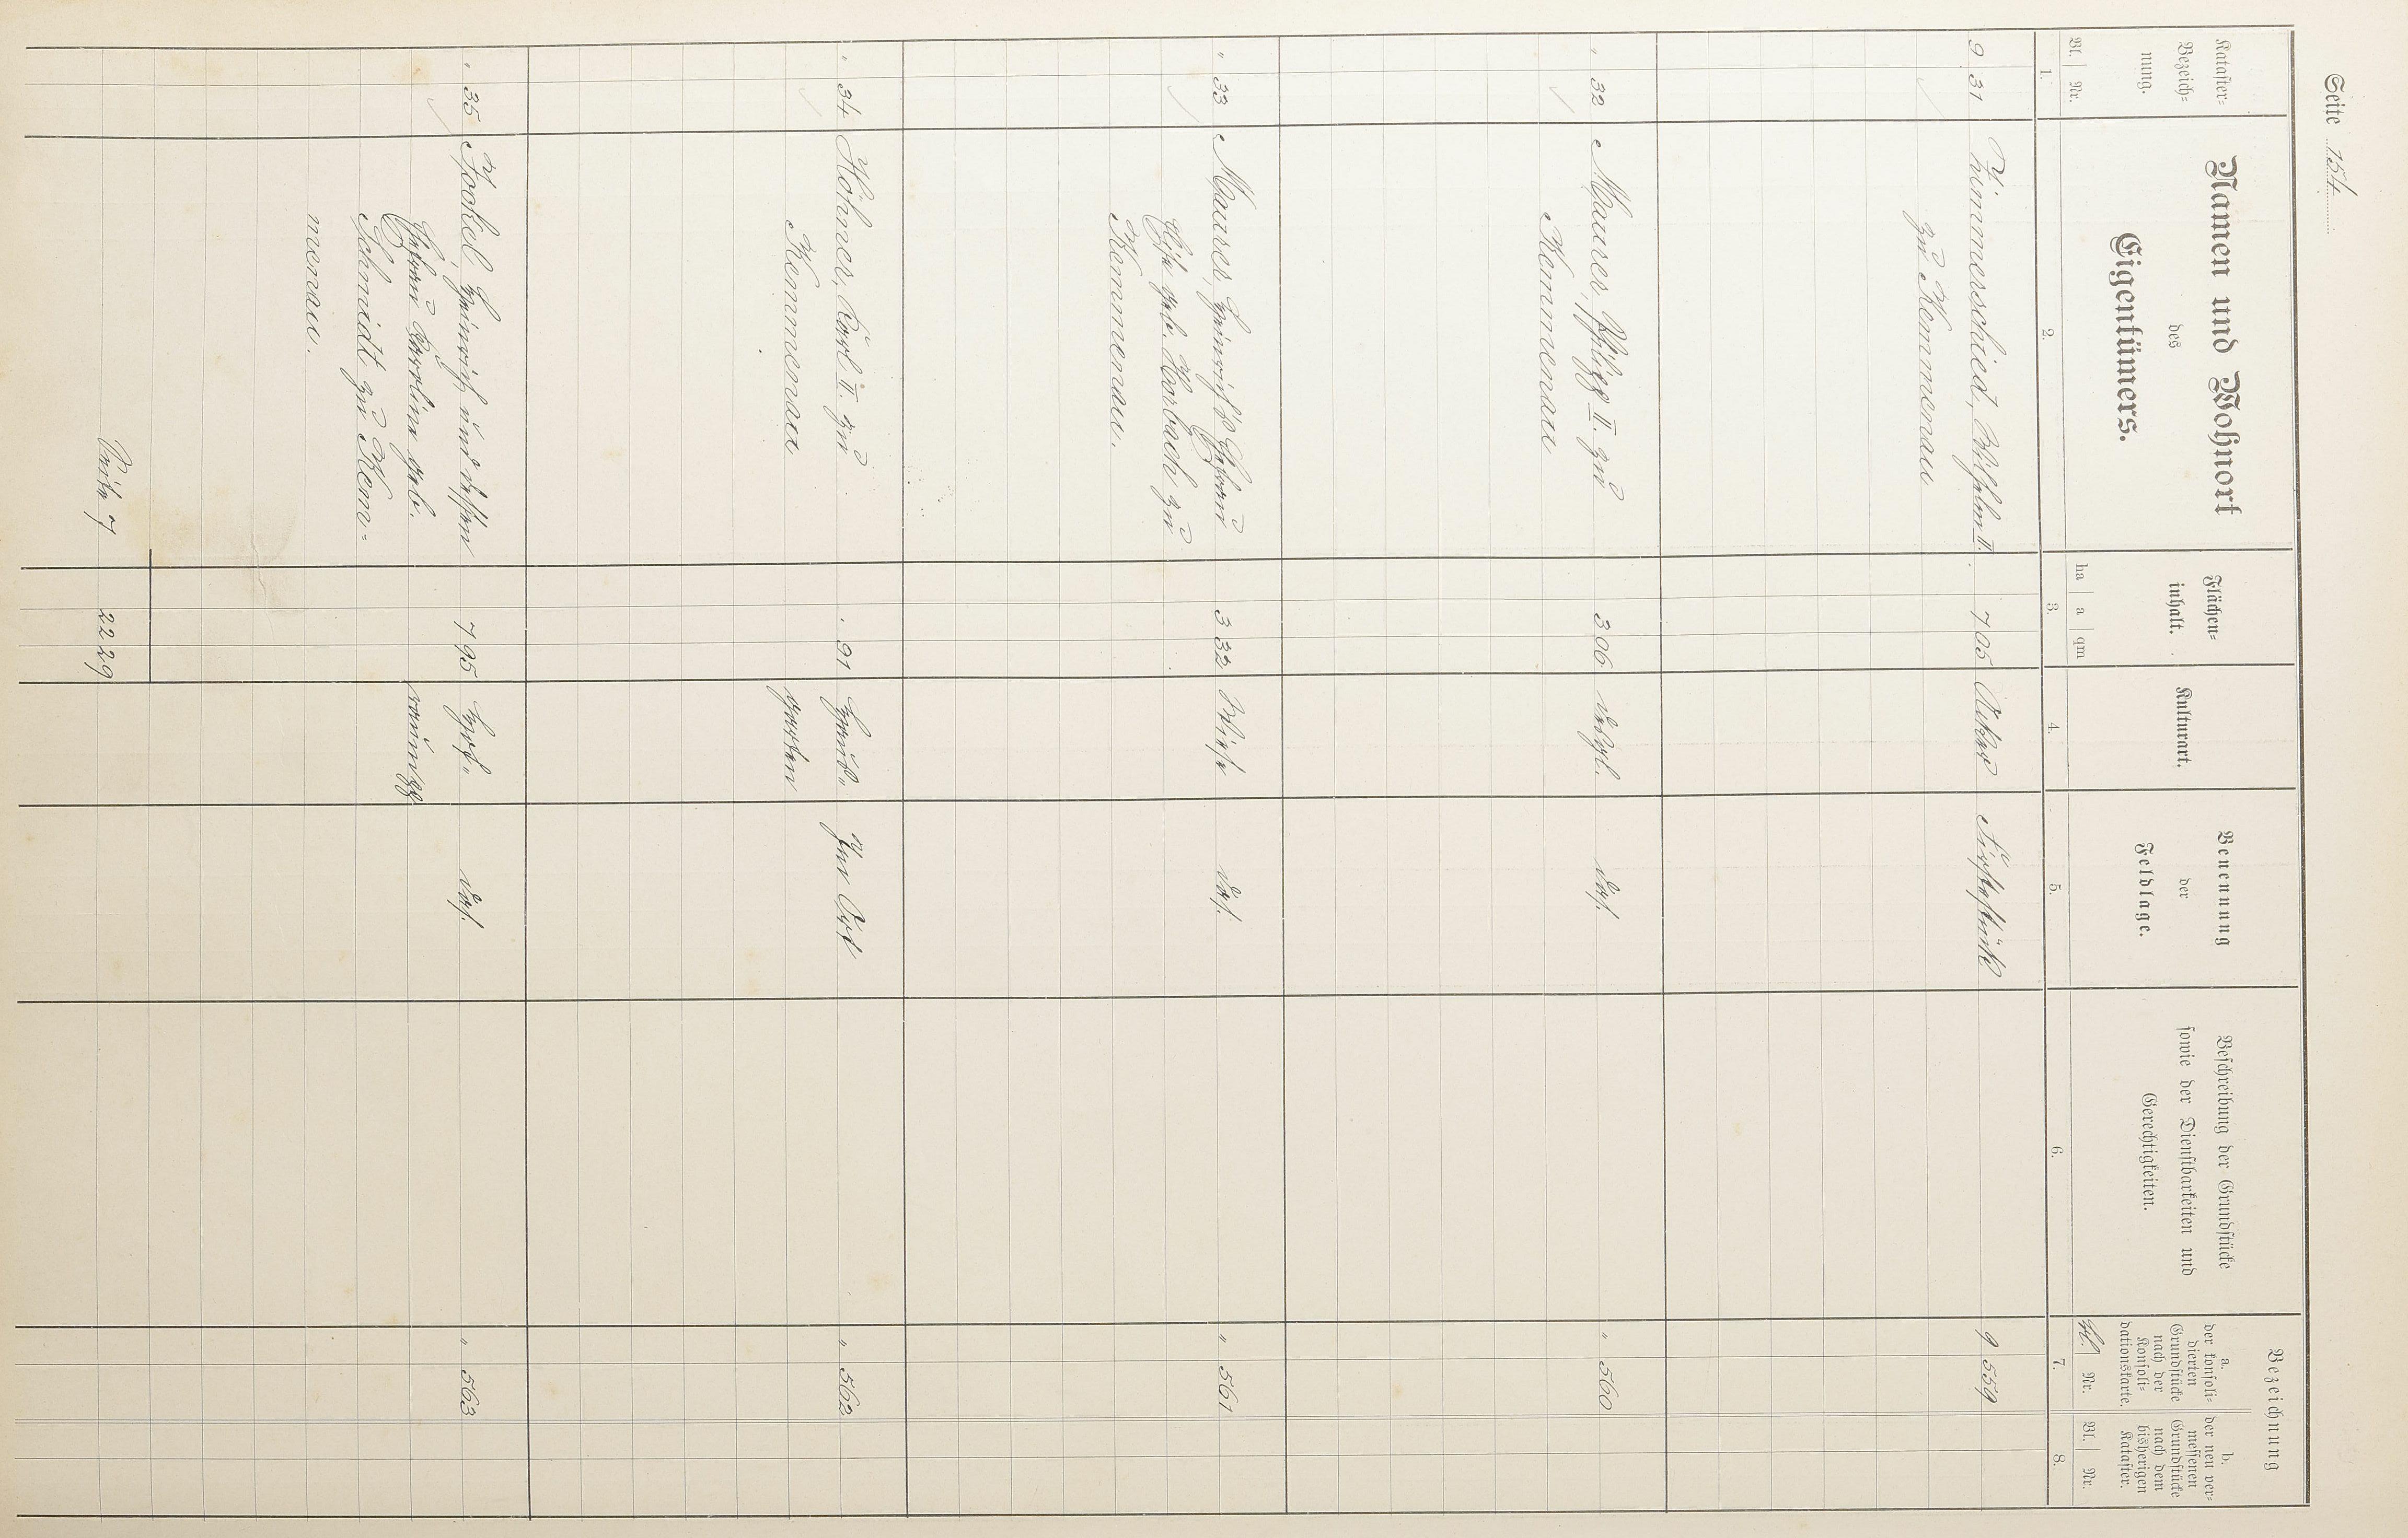 Seite 154
Kataster-
Bezeich-
nung.
Bl. Nr.
1.
Namen und Wohnort
des
Eigentümers.
2.
Flächen-
inhalt.
ha a qm
3.
Kulturart.
4.
Benennung
der
Feldlage.
5.
Beschreibung der Grundstücke
sowie der Dienstbarkeiten und
Gerechtigkeiten.
6.
Bezeichnung
a.
der konsoli-
dierten
Grundstücke
nach der
Konsoli-
dationskarte.
Bl. Nr.
7.
b.
der neu ver-
messenen
Grundstücke
nach dem
bisherigen
Kataster.
Bl. Nr.
8.
9 31 Zimmerschied, Wilhelm II. 7 05 Acker 9 559
zu Kemmenau
" 32 Maurer, Philipp II. zu 3 06 desgl. das. " 560
Kemmenau
" 33 Maurer, Heinrich's Ehefrau 3 32 Wiese das. " 561
Elise geb. Horbach zu
Kemmenau.
" 34 Höhner, Karl II. zu . 91 Haus- Im Ort " 562
Kemmenau garten
" 35 Jockel, Heinrich und dessen 7 95 Hof- das. " 563
Ehefrau Karoline geb. raum pp
Schmidt zu Kem-
menau.
Seite 7 22 29